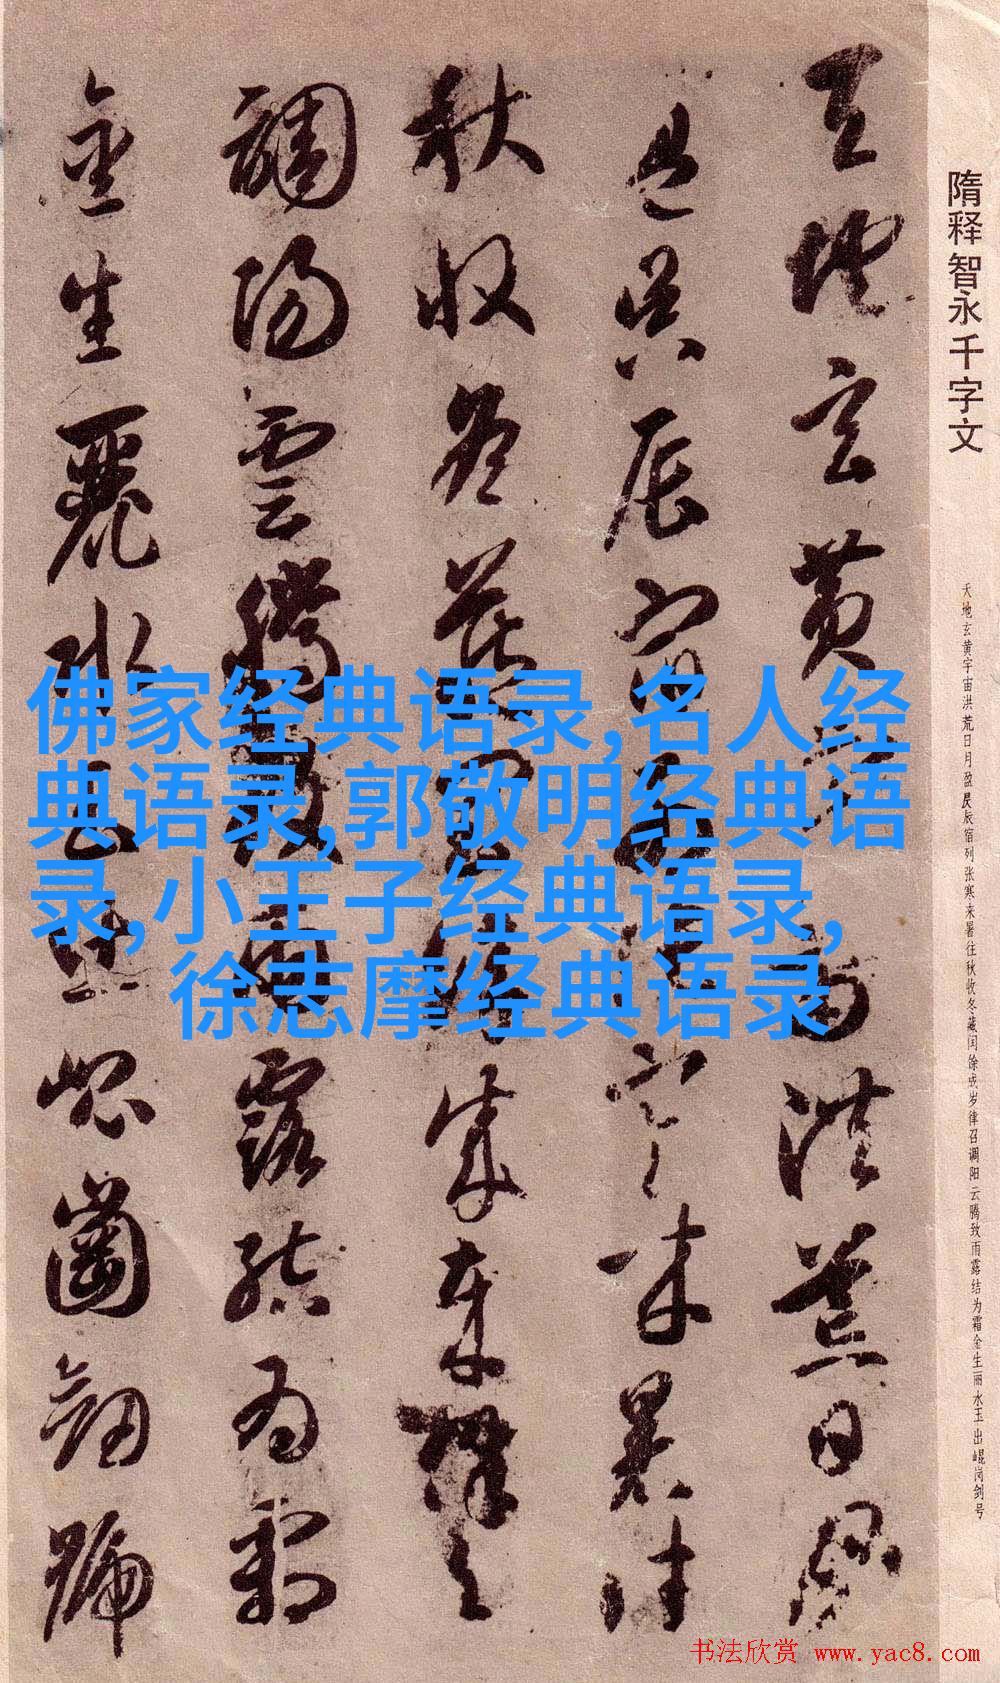 隋释智永千字文
天地玄黄宇宙洪荒日月盈昃辰宿列张寒来暑往秋收冬藏闰馀成岁律召调阳云腾致雨露结为霜金生丽水玉出崐岗剑号
天地玄黄宇宙洪荒日月
盈昃辰宿列張寒来暑往
秋收冬藏閏餘成歲律召
調陽雲騰致雨露結為霜
金生麗水玉出崐崗劒號
佛家经典语录,名人经
典语录,郭敬明经典语
录,小王子经典语录,
徐志摩经典语录
书法欣赏 www.yac8.com